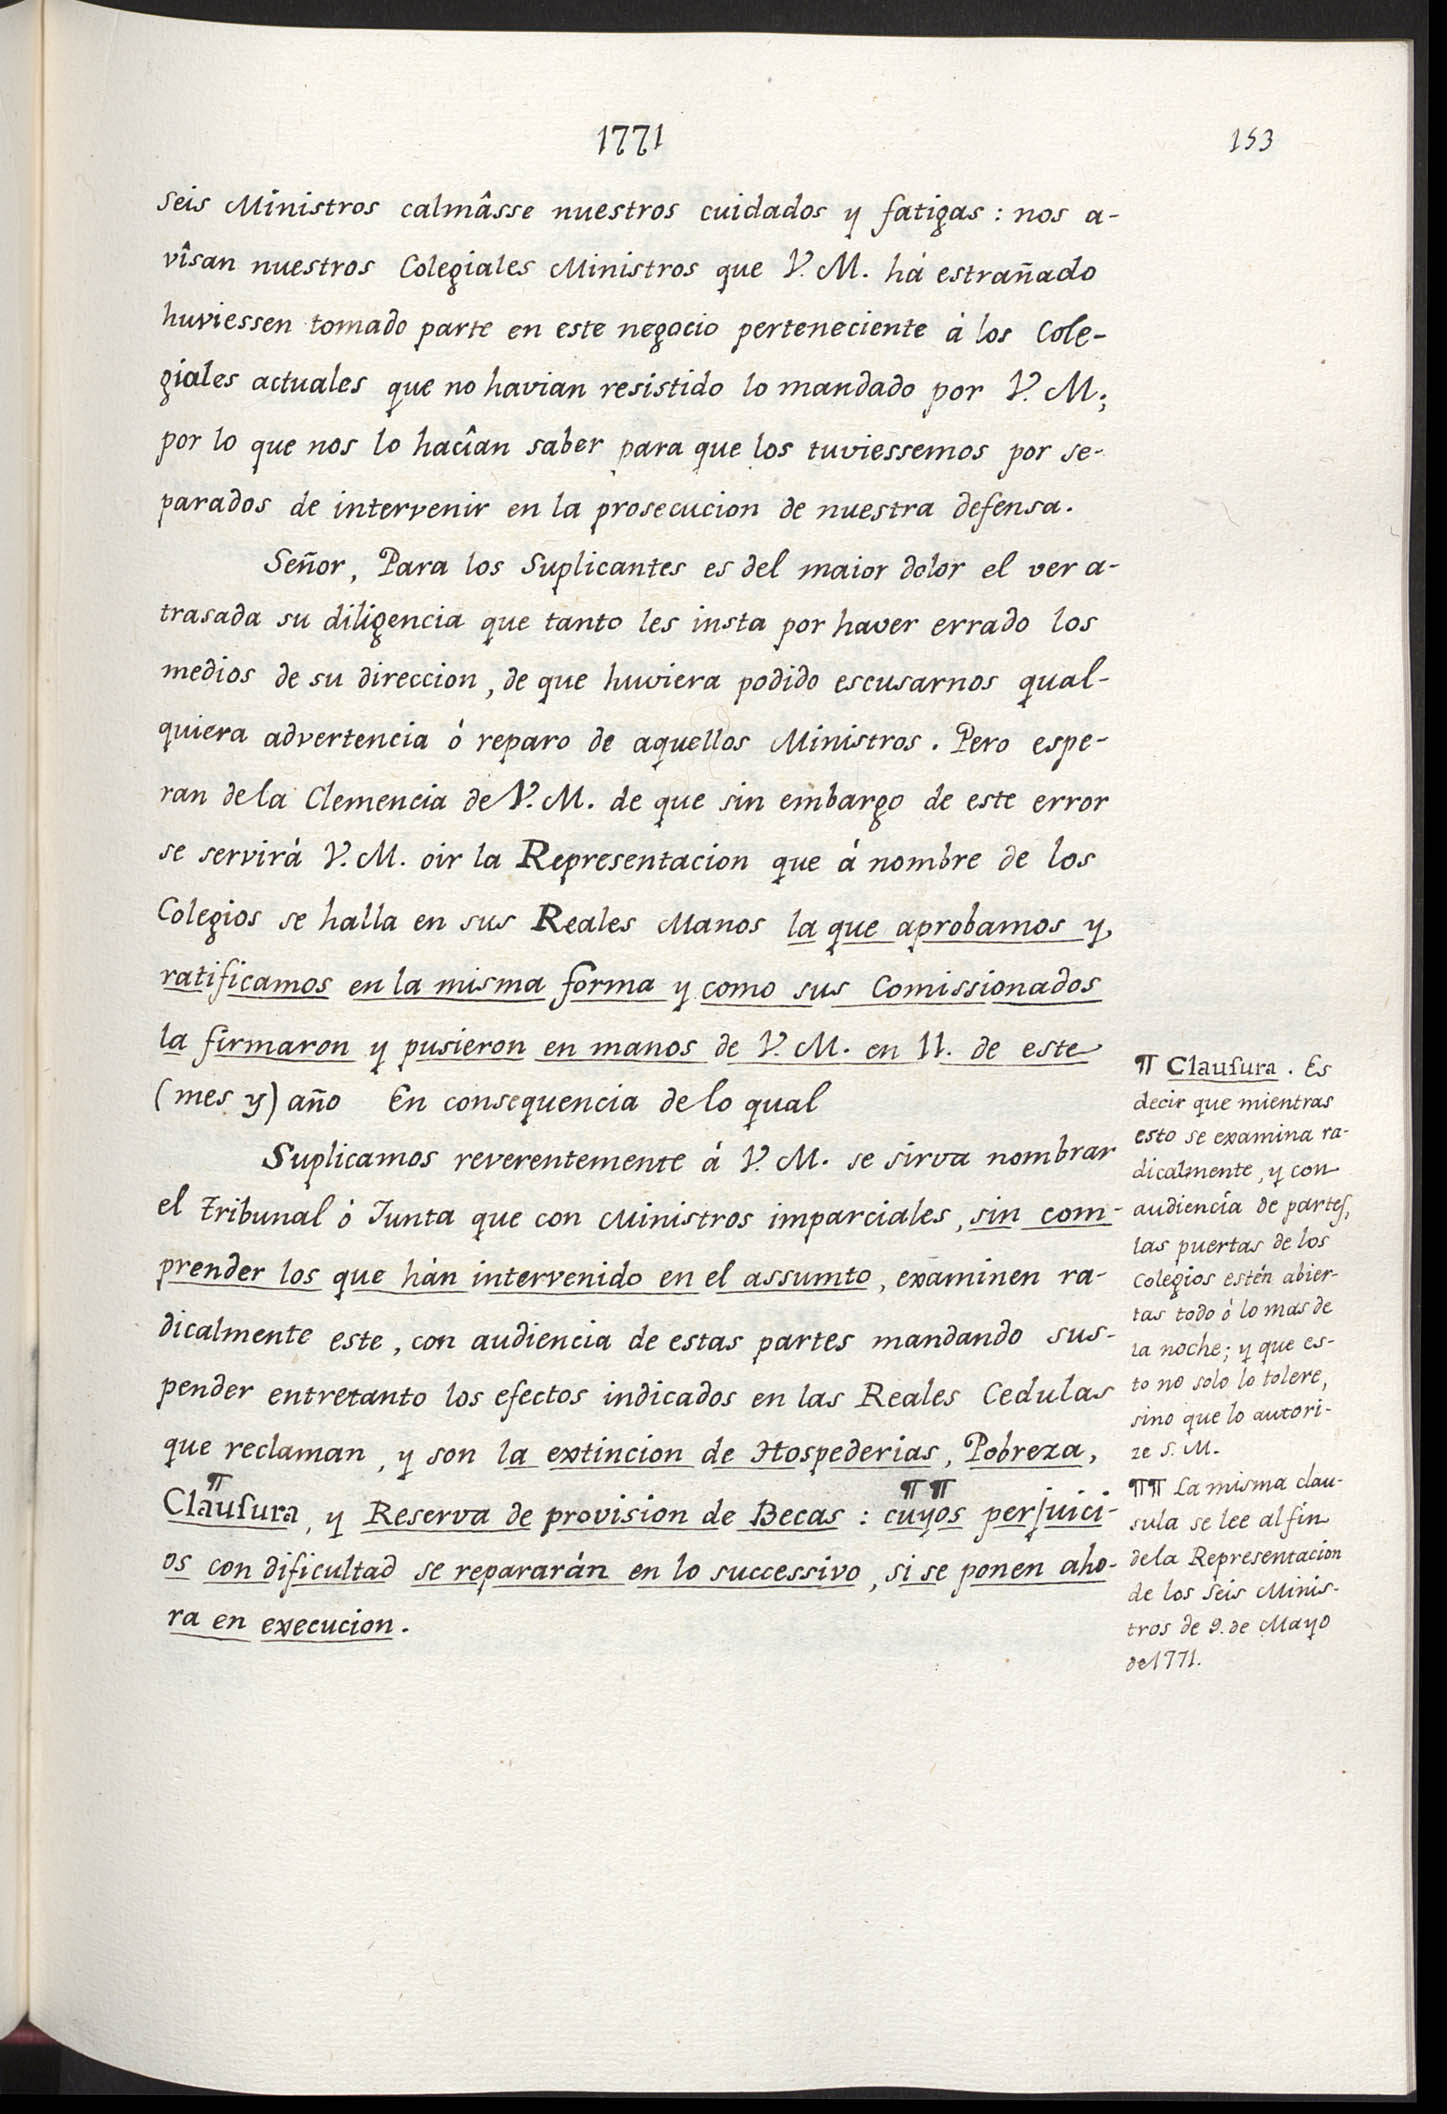 1771
153
seis Ministros calmâsse nuestros cuidados y fatigas: nos a-
vîsan nuestros Colegiales Ministros que V. M. há estrañado
huviessen tomado parte en este negocio perteneciente á los Cole-
giales actuales que no havian resistido lo mandado por V. M;
por lo que nos lo hacîan saber para que los tuviessemos por se-
parados de intervenir en la prosecucion de nuestra defensa.
Señor, Para los Suplicantes es del maior dolor el ver a-
trasada su diligencia que tanto les insta por haver errado los
medios de su direccion, de que huviera podido escusarnos qual-
quiera advertencia ó reparo de aquellos Ministros. Pero espe-
ran de la Clemencia de V. M. de que sin embargo de este error
se servirá V. M. oir la Representacion que á nombre de los
Colegios se halla en sus Reales Manos la que aprobamos y
ratificamos en la misma forma y como sus Comissionados
la firmaron y pusieron en manos de V. M. en 11. de este
(mes y) año En consequencia de lo qual
Suplicamos reverentemente á V. M. se sirva nombrar
el Tribunal ó Junta que con Ministros imparciales, sin com-
prender los que hán intervenido en el assumto, examinen ra-
dicalmente este, con audiencia de estas partes mandando sus-
pender entretanto los efectos indicados en las Reales Cedulas
que reclaman, y son la extincion de Hospederias, Pobreza,
¶ ¶¶
Clauſura, y Reserva de provision de Becas: cuyos perjuici-
os con dificultad se repararán en lo successivo, si se ponen aho-
ra en execucion.
¶ Clauſura. Es
decir que mientras
esto se examina ra-
dicalmente, y con
audiencia de partes,
las puertas de los
Colegios estén abier-
tas todo ó lo mas de
la noche; y que es-
to no solo lo tolere,
sino que lo autori-
ze S. M.
¶¶ La misma clau-
sula se lee al fin
de la Representacion
de los seis Minis-
tros de 9. de Mayo
de 1771.